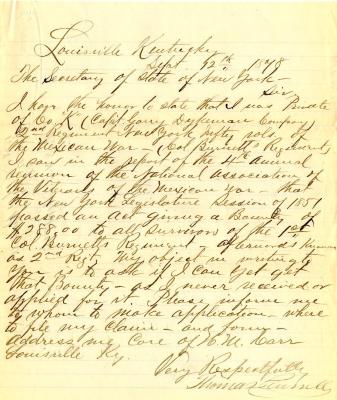 Louisville Kentucky
Sept. 12th 1878
The Secretary of State of New York—
Sir
I have the honor to state that I was Private
of Co. "K" (Capt. Dykeman Company)
2nd Regiment New York vols, of
the Mexican War— (Col Burnett's Regiment)
I saw in the report of the 4th annual
reunion of the National Association of
the Veterans of the Mexican War— that
the New York Legislature Session of 1851
passed an Act giving a Bounty of
$288.00 to all Survivors of the 1st
Col. Burnett's Regiment— afterwards known
as 2nd Regt. My object in writing to
you is to ask if I can yet get
that Bounty— as I never received or
applied for it. Please inform me
to whom to make application— where
to file my claim— and form—
address my Care of H. M. Carr
Louisville Ky.
Very Respectfully
Thomas